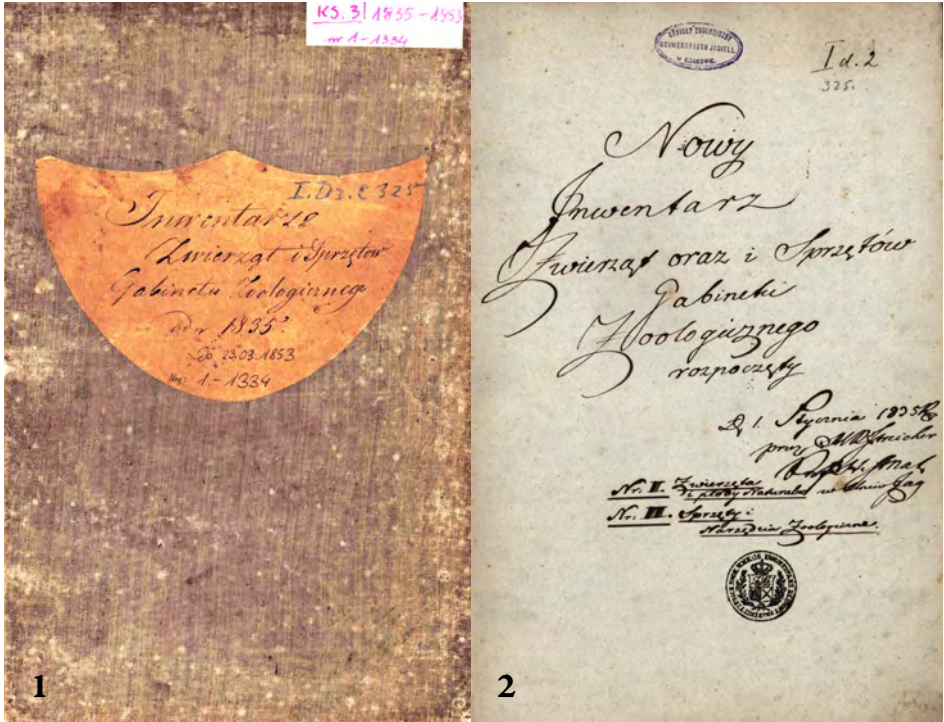 KS. 3 | 1835 - 1853
nr 1 - 1334
I. Dz. 2 325
Inwentarze
Zwierząt i Sprzętów
Gabinetu Zoologicznego
od r 1835.
Do 23.03.1853
Nry: 1. - 1334
1
GABINET ZOOLOGICZNY
UNIWERSYTETU JAGIELL.
W KRAKOWIE.
I d. 2
325.
Nowy
Inwentarz
Zwierząt oraz i Sprzętów
Gabinetu
Zoologicznego
rozpoczęty
1. Stycznia 1835
przez
Nr. II. Zwierzęta
i płody Naturalne w Jag
Nr. III. Sprzęty i
Narzędzia Zoologiczne.
2